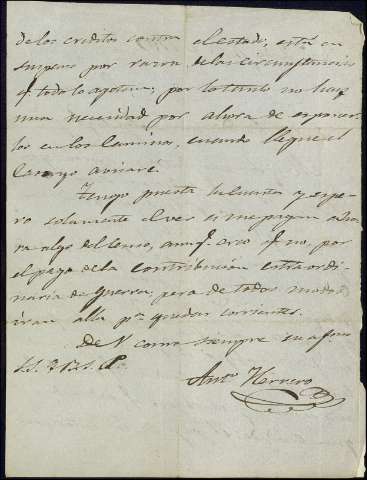 de los creditos contra el estado, está en
suspenso por razon de las circunstancias
q.e todo lo agotan; por lo tanto no hay
una necesidad por ahora de esponer
los en los caminos, cuando llegue el
caso yo avisaré.
Tengo puesta la cuenta y espe
ro solamente el ver si me pagan aho
ra algo del censo, aunq.e creo q.e no, por
el pago de la contribucion estraordi
naria de guerra, pero de todos modos
iran alla p.a quedar corrientes.
De V. como siempre su afmo
S.S. Q.B.S.M.
Ant.o Herrero